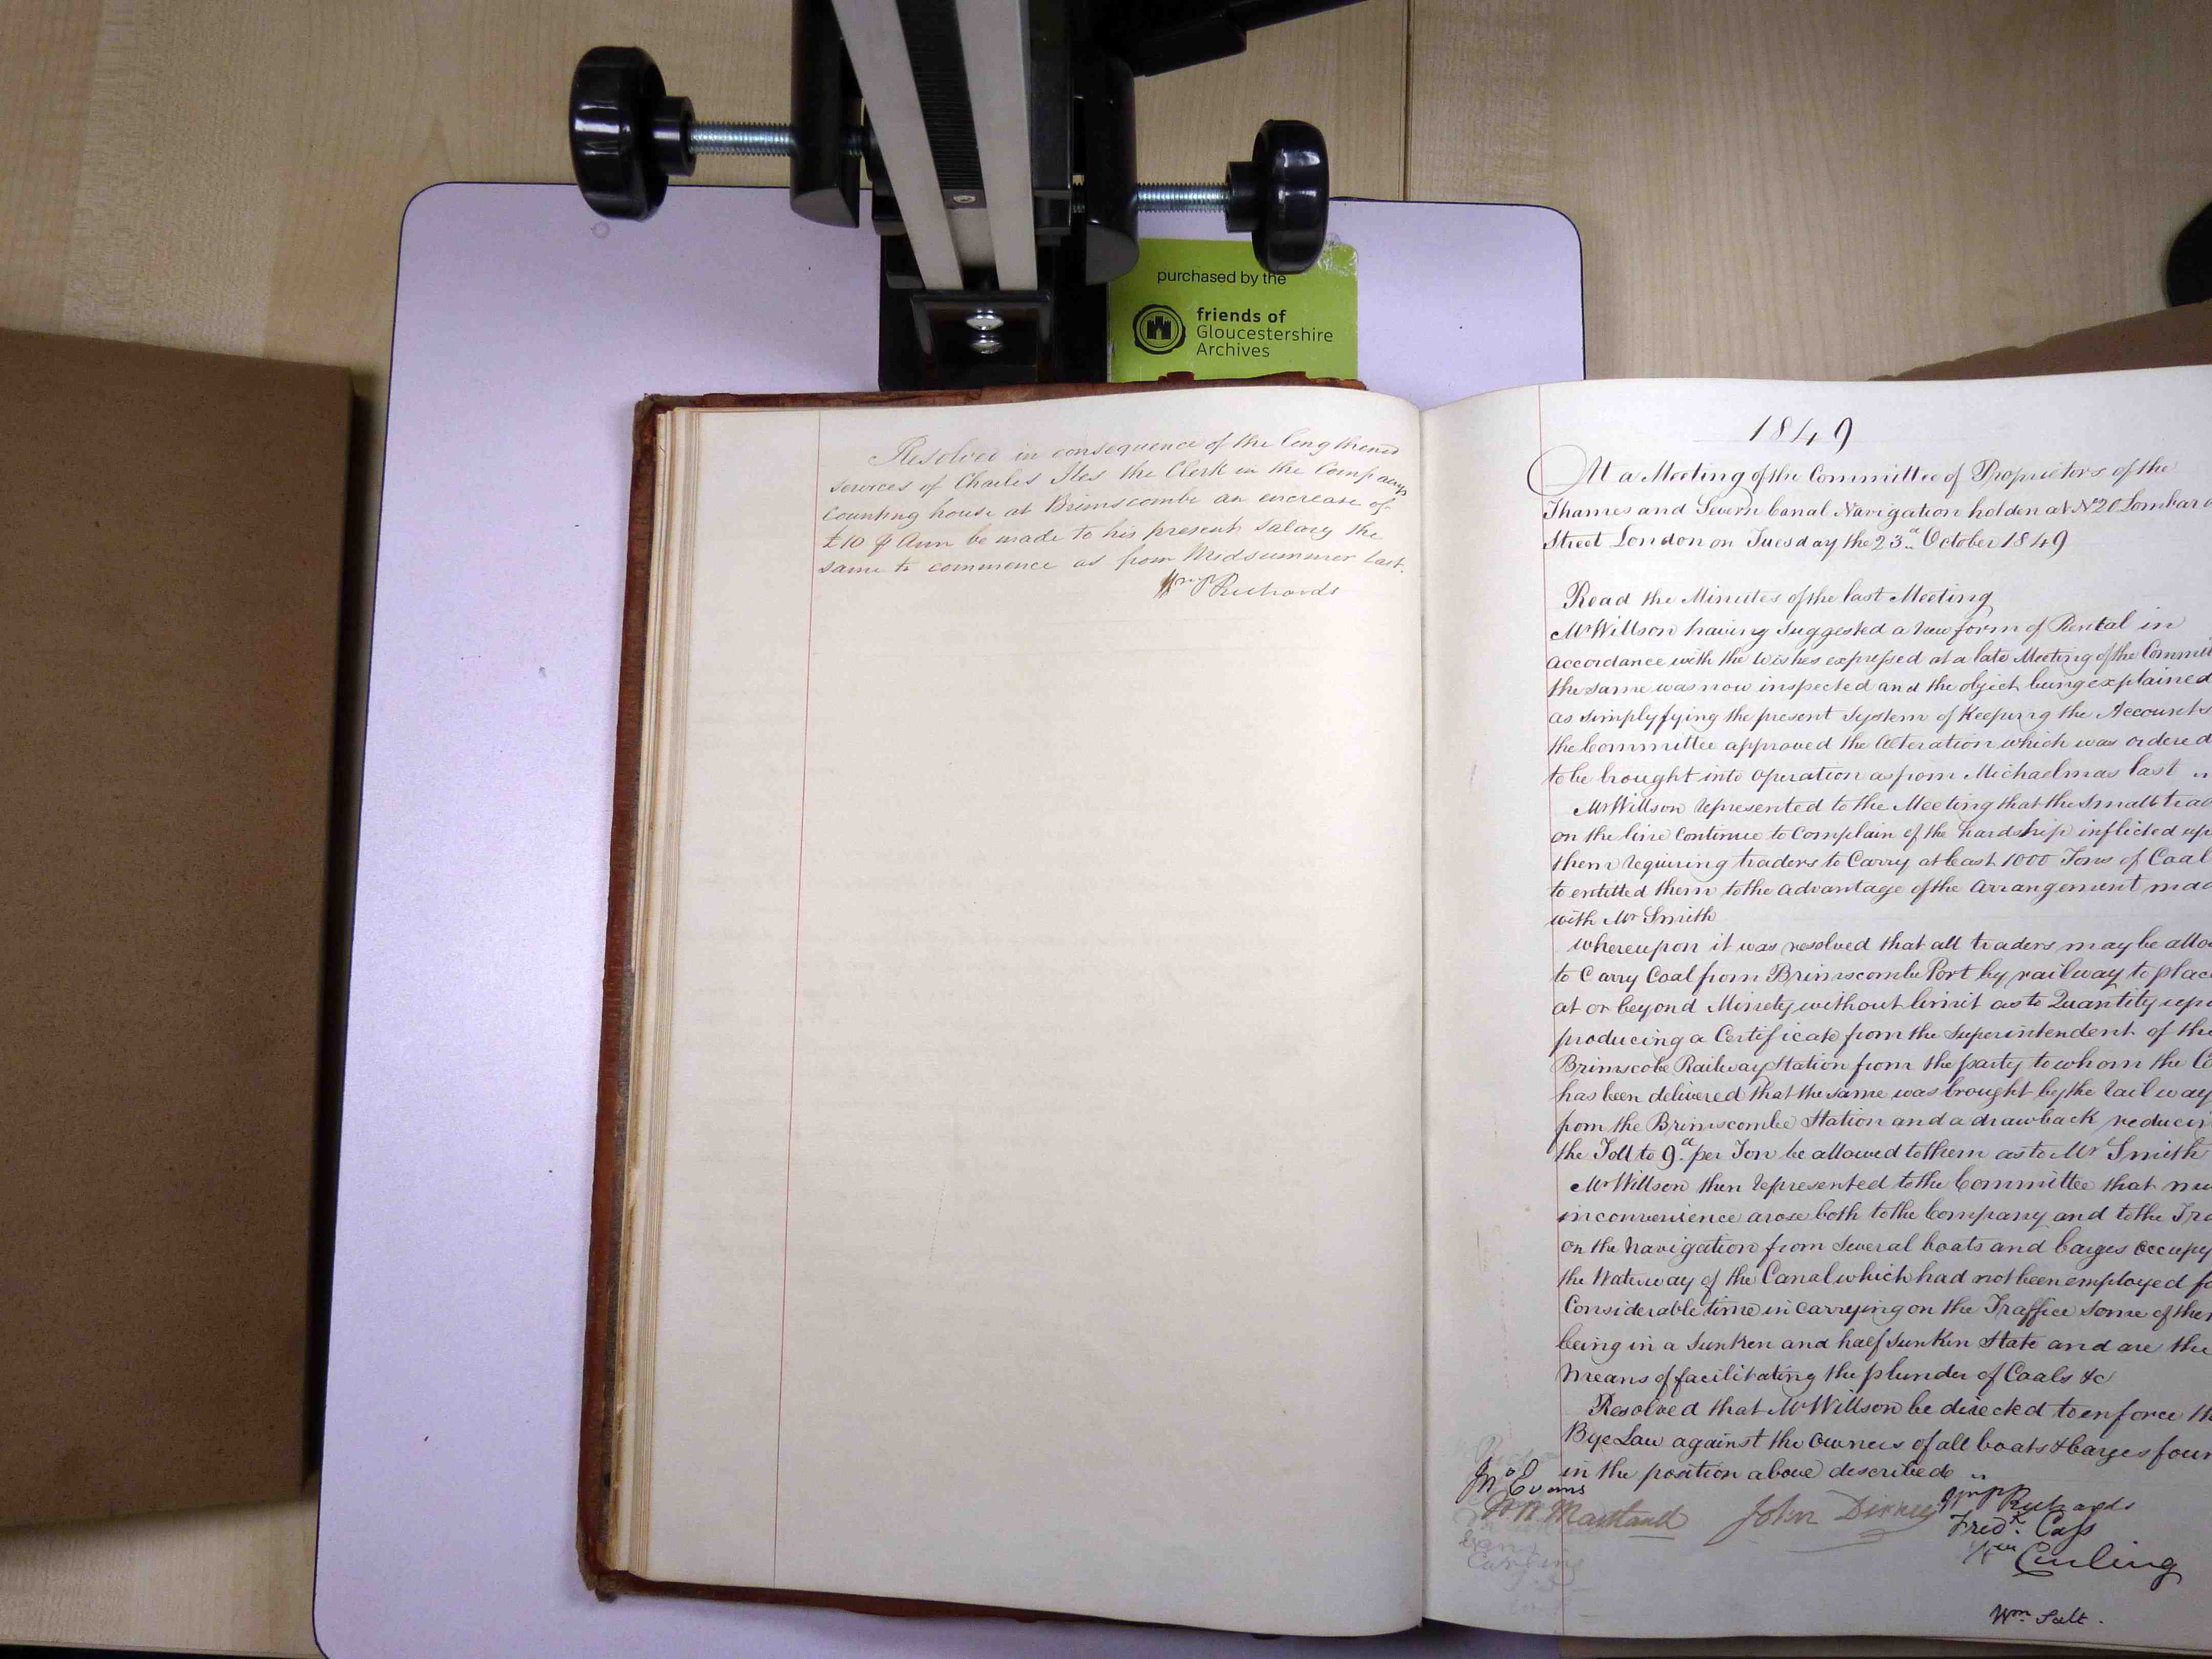 purchased by the
friends of
Gloucestershire
Archives
Resolved in consequence of the lengthened
services of Charles Iles the Clerk in the Companys
counting house at Brimscombe an increase of
£10 ⅌ Ann be made to his present salary the
same to commence as from Midsummer last.
Wm P Richards
1849
At a Meeting of the Committee of Proprietors of the
Thames and Severn Canal Navigation holden at No 20 Lombard
Street London on Tuesday the 23d. October 1849
Read the Minutes of the last Meeting
Mr Willson having Suggested a new form of Rental in
accordance with the Wishes expressed at a late Meeting of the Committ
the same was now inspected and the object being explained
as simplyfying the present System of Keeping the Accounts
the Committee approved the Alteration which was ordered
to be brought into operation as from Michaelmas last
Mr Willson represented to the Meeting that the Small trad
on the line Continue to Complain of the hardship inflicted up
them requiring traders to Carry at least 1000 Tons of Coal
to entitled them to the advantage of the arrangement mad
with Mr Smith
whereupon it was resolved that all traders may be allo
to Carry Coal from Brimscombe Port by railway to plac
at or beyond Minety without limit as to Quantity upo
producing a Certificate from the Superintendent of the
Brimscobe Railway Station from the party to whom the Co
has been delivered that the same was brought by the railway
from the Brimscombe Station and a drawback reducin
the Toll to 9d. per Ton be allowed to them as to Mr Smith
Mr Willson then represented to the Committee that mu
inconvenience arose both to the Company and to the Tra
on the Navigation from Several boats and barges occupy
the Waterway of the Canal which had not been employed fo
Considerable time in Carrying on the Traffice some of them
being in a Sunken and half Sunken State and are the
Means of facilitating the plunder of Coals &c
Resolved that Mr Willson be directed to enforce th
Bye Law against the Owners of all boats & barges foun
in the position above described
Jno Evans
John
Wm P Richards
Fredk. Cass
Wm Curling
Wm Salt.